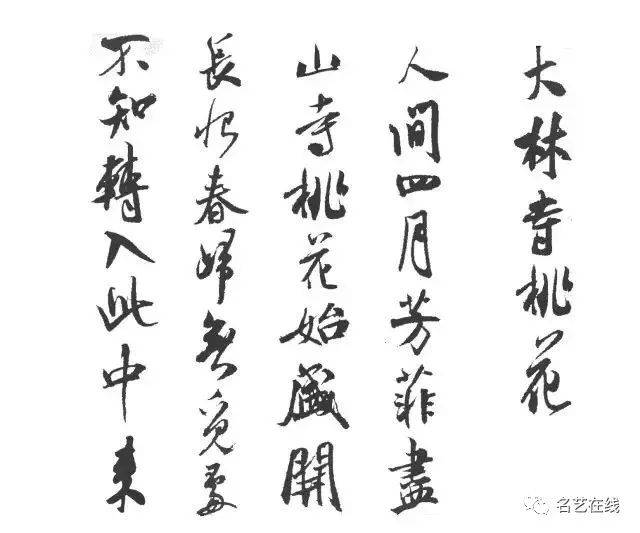 大林寺桃花
人間四月芳菲盡
山寺桃花始盛開
長恨春歸無覓處
不知轉入此中來
名艺在线